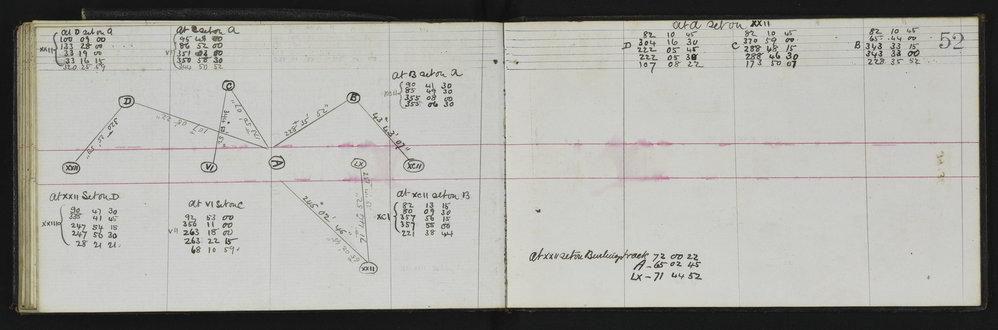 at D set on A
XXII
100 09 00
133 28 00
33 19 00
33 16 15
320 25 59
at C set on A
VI
95 49 00
86 52 00
351 03 00
350 58 30
344 50 52
at B set on A
90 41 30
85 49 30
355 08 00
355 06 30
D
C
B
107° 08' 22"
228° 35' 52"
XXII
VI
A
LX
XCII
at XXII Set on D
90 47 30
335 41 45
247 54 15
247 56 30
28 21 21
at VI Set on C
VII
92 53 00
356 11 00
263 18 00
263 22 15
68 10 59
246° 02'
XXII
at XCII set on B
XCI
82 13 15
80 09 30
357 56 15
357 55 00
221 38 44
at A set on XXII
52
D
82 10 45
304 16 30
222 05 45
222 05 30
107 08 22
C
82 10 45
370 59 00
288 48 15
288 46 30
173 50 07
B
82 10 45
65 44 00
343 33 15
343 33 00
228 35 52
at XXII set on track 72 00 22
A - 65 02 45
LX - 71 44 52